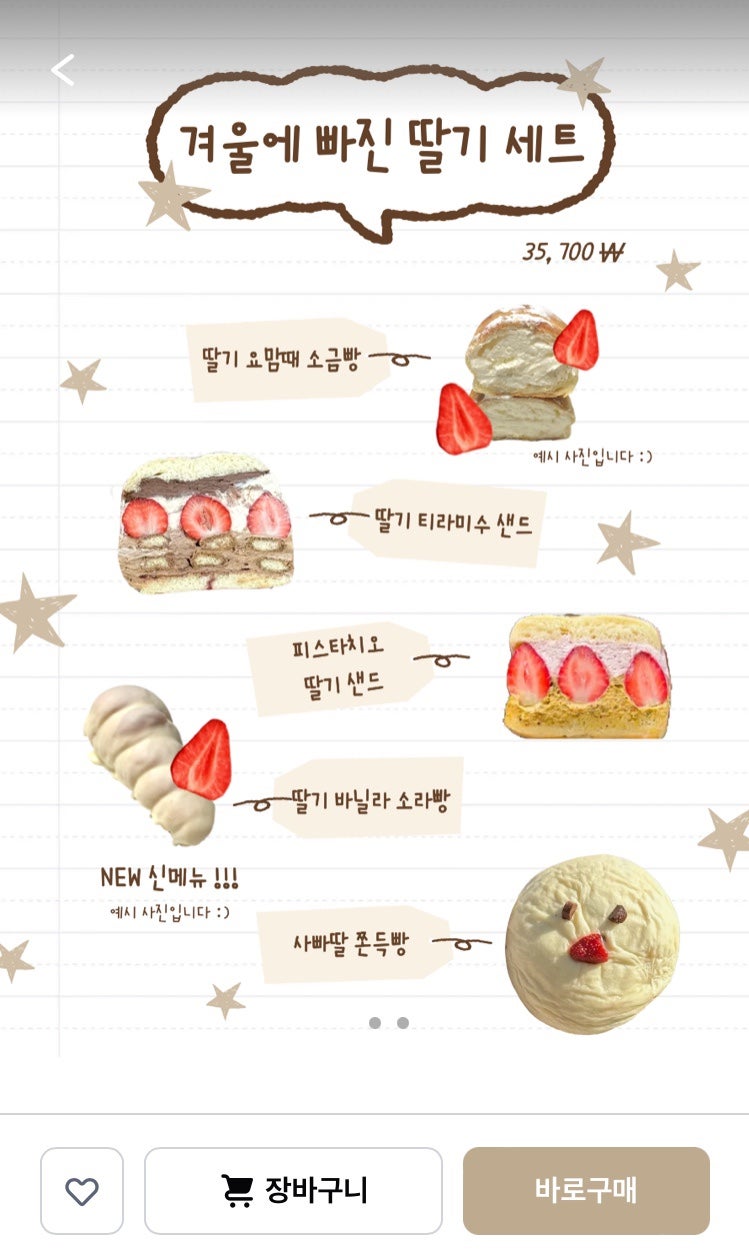 겨울에 빠진 딸기 세트
35,700 ₩
딸기 요맘때 소금빵
예시 사진입니다 :)
딸기 티라미수 샌드
피스타치오
딸기 샌드
딸기 바닐라 소라빵
NEW 신메뉴 !!!
예시 사진입니다 :)
사빠딸 쫀득빵
장바구니
바로구매